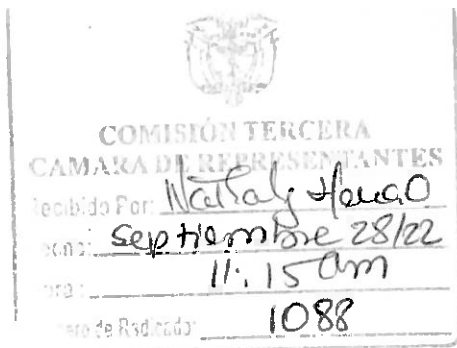 COMISIÓN TERCERA
CAMARA DE REPRESENTANTES
Recibido Por: Nataly Henao
septiembre 28/22
11:15 am
Número de Radicado: 1088